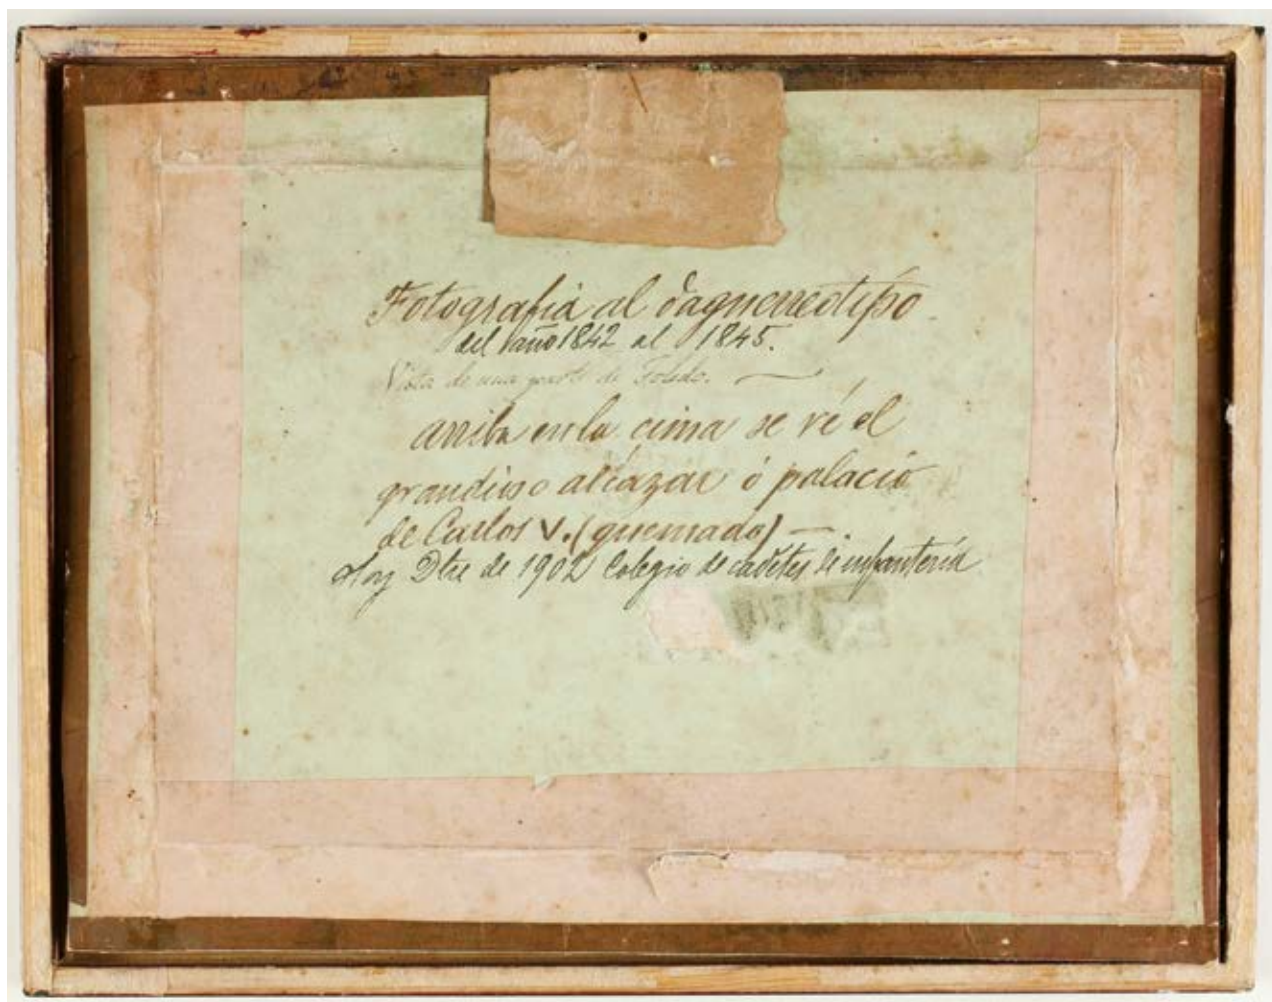 Fotografia al daguerreotipo
del año 1842 al 1845.
Vista de una parte de Toledo.
arriba en la cima se vé el
grandioso alcázar ó palacio
de Carlos V. (quemado) —
Hoy Dbre de 1902 Colegio de cadetes de infantería